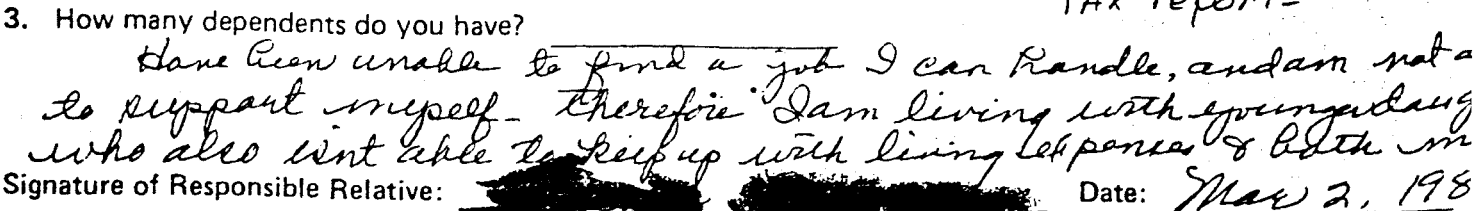 TAX report-
3. How many dependents do you have?
Have been unable to find a job I can handle, and am not a
to support myself - therefore I am living with younger daug
who also isnt able to keep up with living expenses & both m
Signature of Responsible Relative: Date: Mar 2, 198